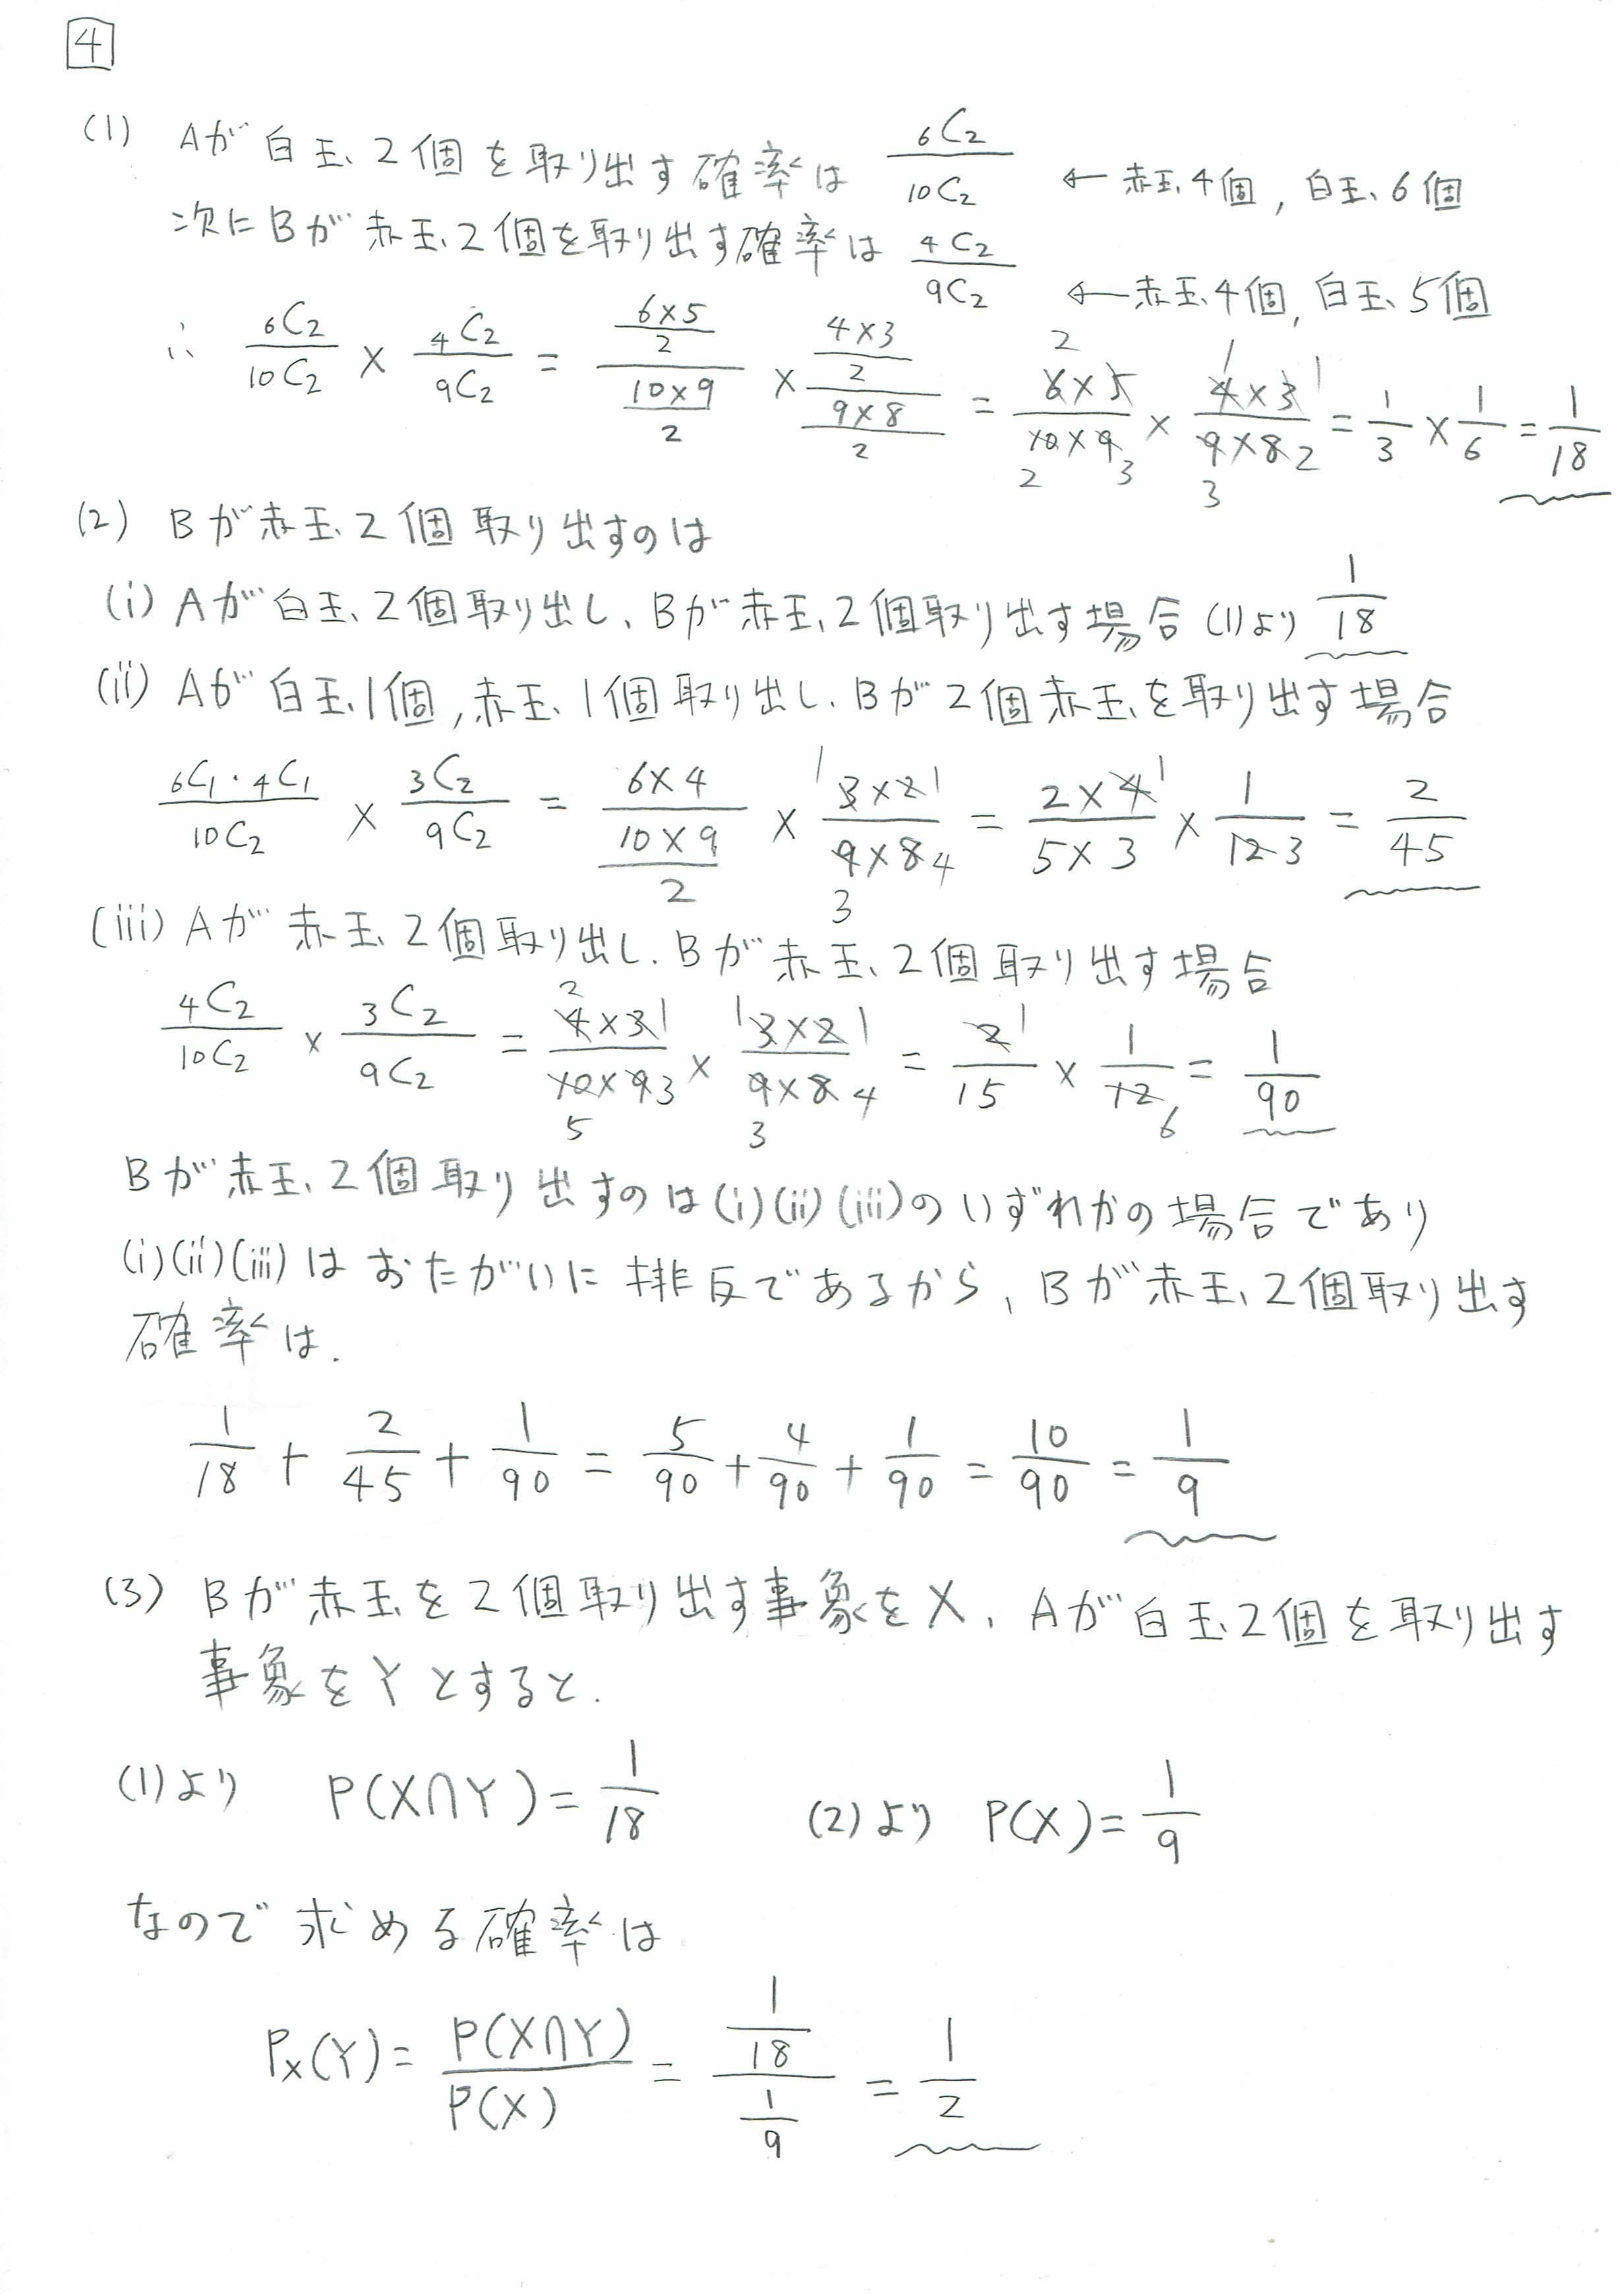 4
(1) Aが白玉2個を取り出す確率は 6C2/10C2 ← 赤玉4個, 白玉6個
次にBが赤玉2個を取り出す確率は 4C2/9C2 ← 赤玉4個, 白玉5個
∴ 6C2/10C2 × 4C2/9C2 = (6×5/2)/(10×9/2) × (4×3/2)/(9×8/2) = 6×5/10×9 × 4×3/9×8 = 1/3 × 1/6 = 1/18
(2) Bが赤玉2個取り出すのは
(i) Aが白玉2個取り出し、Bが赤玉2個取り出す場合 (1)より 1/18
(ii) Aが白玉1個, 赤玉1個取り出し、Bが2個赤玉を取り出す場合
6C1・4C1/10C2 × 3C2/9C2 = 6×4/(10×9/2) × 3×2/9×8 = 2×4/5×3 × 1/12 = 2/45
(iii) Aが赤玉2個取り出し、Bが赤玉2個取り出す場合
4C2/10C2 × 3C2/9C2 = 4×3/10×9 × 3×2/9×8 = 2/15 × 1/12 = 1/90
Bが赤玉2個取り出すのは(i)(ii)(iii)のいずれかの場合であり
(i)(ii)(iii)はおたがいに排反であるから、Bが赤玉2個取り出す
確率は.
1/18 + 2/45 + 1/90 = 5/90 + 4/90 + 1/90 = 10/90 = 1/9
(3) Bが赤玉を2個取り出す事象をX、Aが白玉2個を取り出す
事象をYとすると.
(1)より P(X∩Y)=1/18 (2)より P(X)=1/9
なので求める確率は
Px(Y)= P(X∩Y)/P(X) = (1/18)/(1/9) = 1/2